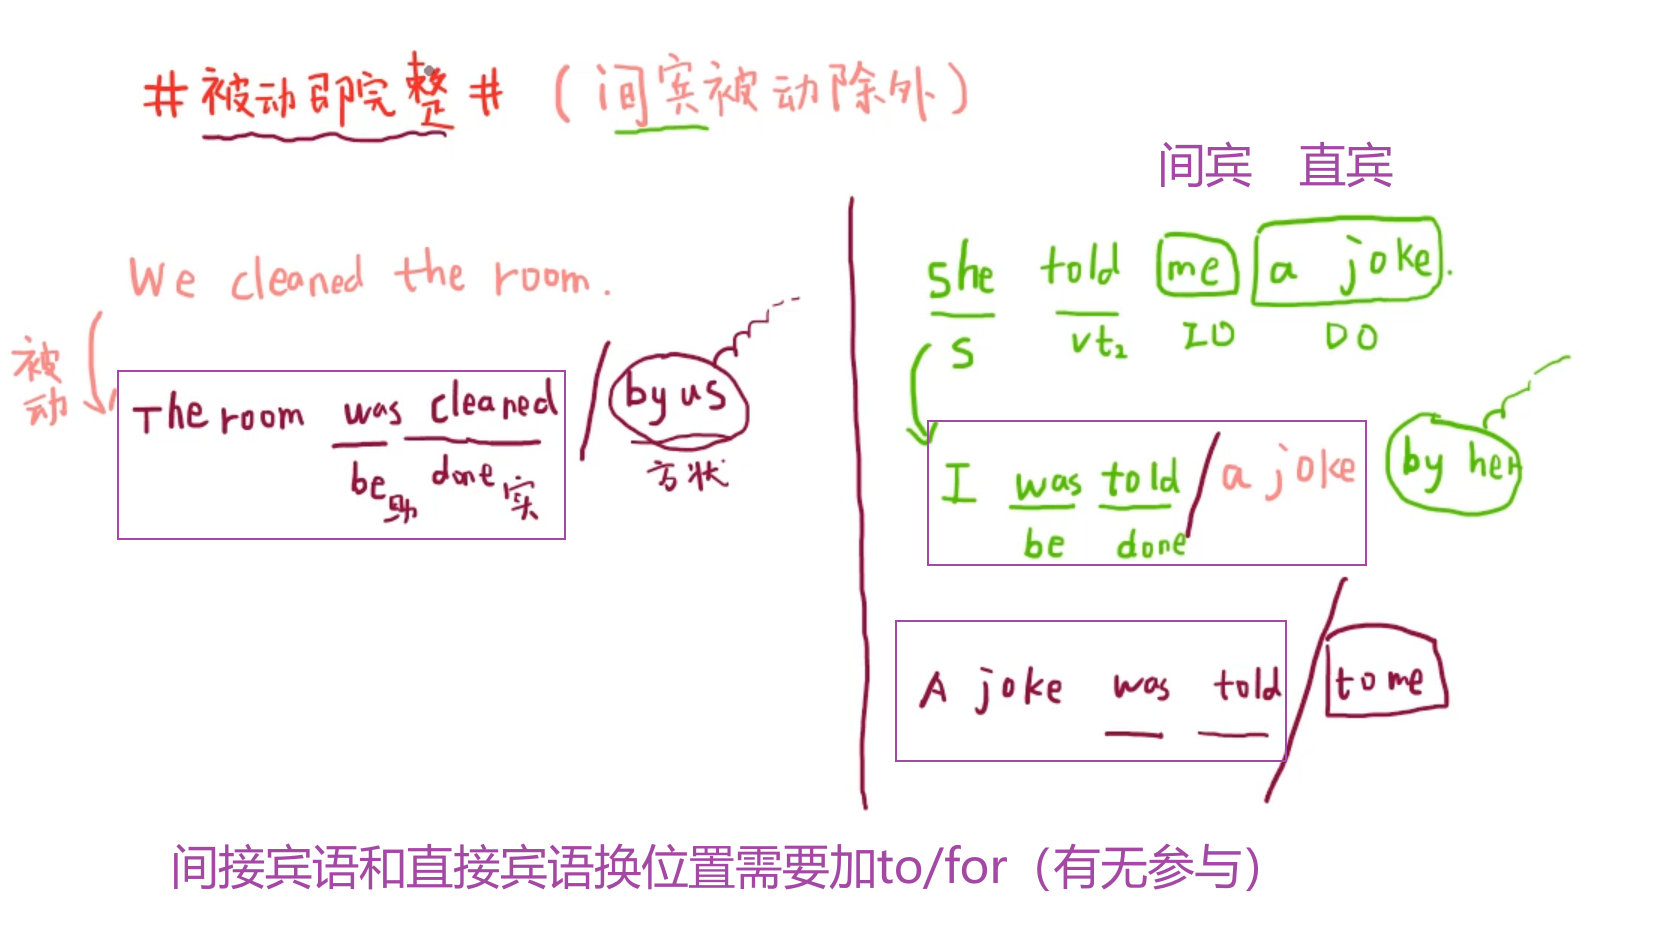 #被动即完整# (间宾被动除外)
间宾 直宾
We cleaned the room.
被动
The room was cleaned / by us
be助 done实 方状
she told me a joke.
S vt₂ IO DO
I was told / a joke by her
be done
A joke was told / to me
间接宾语和直接宾语换位置需要加to/for（有无参与）